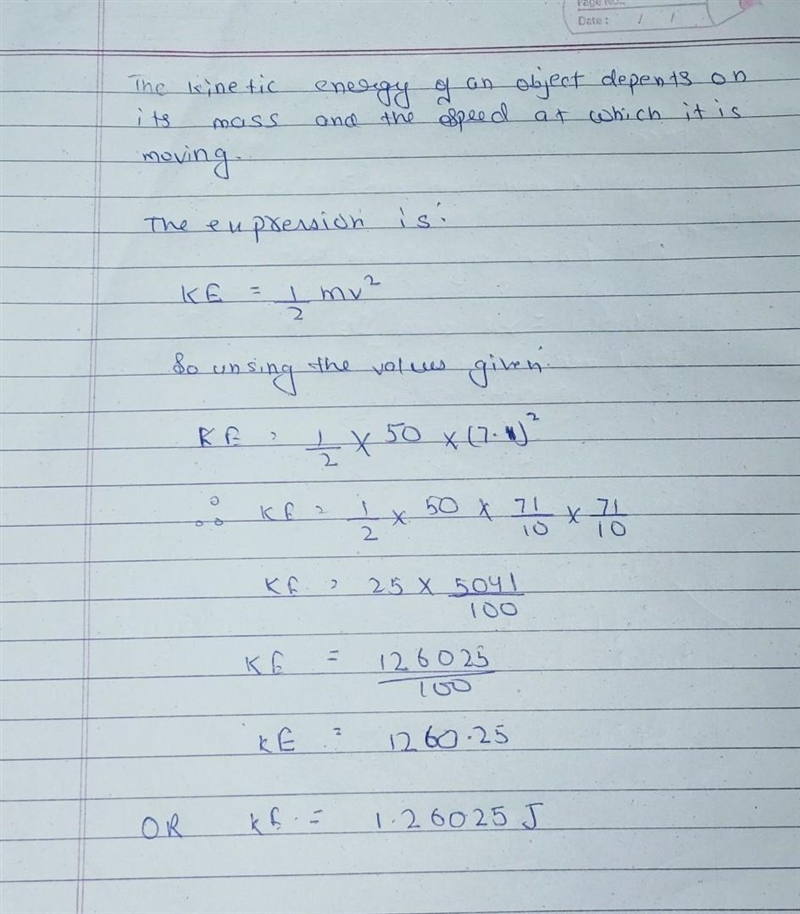 Page No.:
Date: / /
The kinetic energy of an object depents on
its mass and the speed at which it is
moving.
The eupression is:
KE = 1/2 mv²
So unsing the values given.
KE = 1/2 × 50 × (7.1)²
∴ KE = 1/2 × 50 × 71/10 × 71/10
KE = 25 × 5041/100
KE = 126025/100
KE = 1260.25
OR KE = 1.26025 J